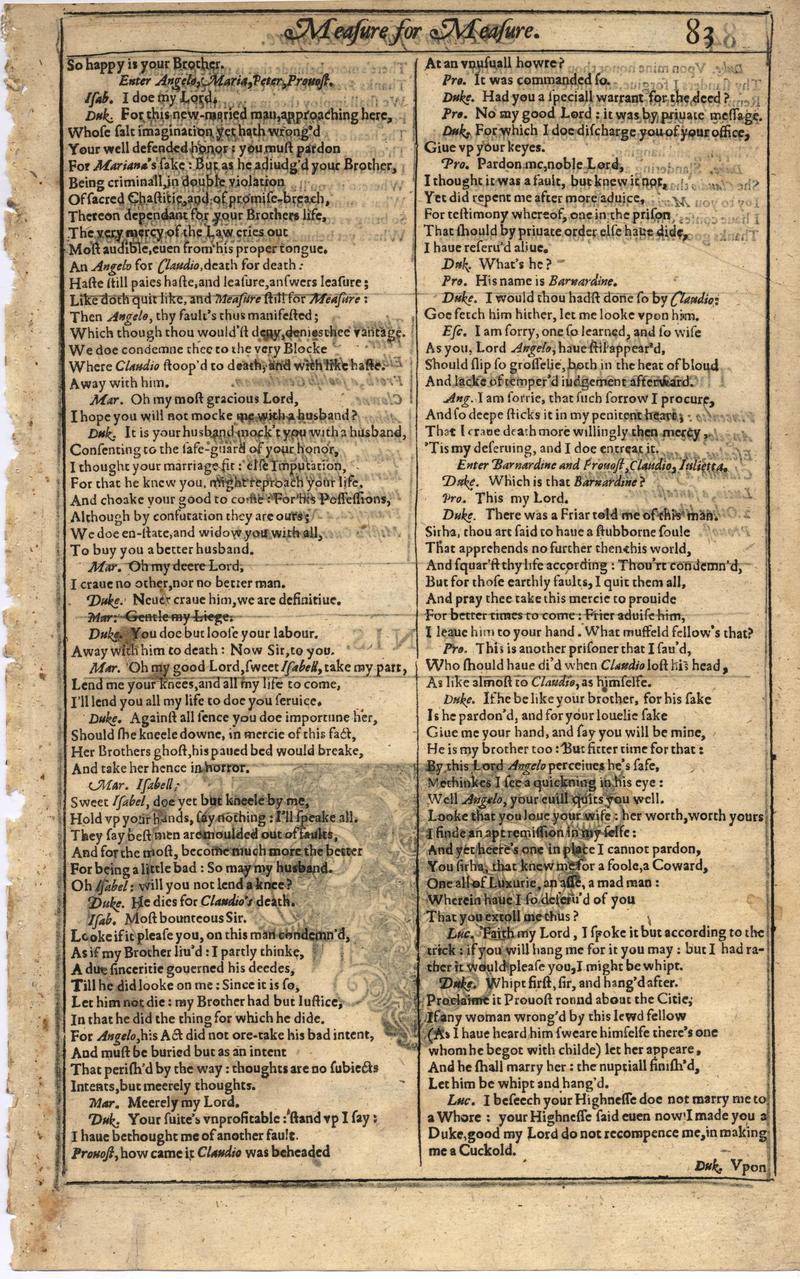 Meaſure for Meaſure. 83
So happy is your Brother.
Enter Angelo, Maria, Peter, Prouoſt.
Iſab. I doe my Lord.
Duk. For this new-maried man, approaching here,
Whoſe ſalt imagination yet hath wrong'd
Your well defended honor: you muſt pardon
For Mariana's ſake: But as he adiudg'd your Brother,
Being criminall, in double violation
Of ſacred Chaſtitie, and of promiſe-breach,
Thereon dependant for your Brothers life,
The very mercy of the Law cries out
Moſt audible, euen from his proper tongue.
An Angelo for Claudio, death for death:
Haſte ſtill paies haſte, and leaſure, anſwers leaſure;
Like doth quit like, and Meaſure ſtill for Meaſure:
Then Angelo, thy fault's thus manifeſted;
Which though thou would'ſt deny, denies thee vantage.
We doe condemne thee to the very Blocke
Where Claudio ſtoop'd to death, and with like haſte.
Away with him.
Mar. Oh my moſt gracious Lord,
I hope you will not mocke me with a husband?
Duk. It is your husband mock't you with a husband,
Conſenting to the ſafe-guard of your honor,
I thought your marriage fit: elſe Imputation,
For that he knew you, might reproach your life,
And choake your good to come: For his Poſſeſſions,
Although by confutation they are ours;
We doe en-ſtate, and widow you with all,
To buy you a better husband.
Mar. Oh my deere Lord,
I craue no other, nor no better man.
Duke. Neuer craue him, we are definitiue.
Mar. Gentle my Liege.
Duke. You doe but looſe your labour.
Away with him to death: Now Sir, to you.
Mar. Oh my good Lord, ſweet Iſabell, take my part,
Lend me your knees, and all my life to come,
I'll lend you all my life to doe you ſeruice.
Duke. Againſt all ſence you doe importune her,
Should ſhe kneele downe, in mercie of this fact,
Her Brothers ghoſt, his paued bed would breake,
And take her hence in horror.
Mar. Iſabell:
Sweet Iſabel, doe yet but kneele by me,
Hold vp your hands, ſay nothing: I'll ſpeake all.
They ſay beſt men are moulded out of faults,
And for the moſt, become much more the better
For being a little bad: So may my husband.
Oh Iſabel: will you not lend a knee?
Duke. He dies for Claudio's death.
Iſab. Moſt bounteous Sir.
Looke if it pleaſe you, on this man condemn'd,
As if my Brother liu'd: I partly thinke,
A due ſinceritie gouerned his deedes,
Till he did looke on me: Since it is ſo,
Let him not die: my Brother had but Iuſtice,
In that he did the thing for which he dide.
For Angelo, his Act did not ore-take his bad intent,
And muſt be buried but as an intent
That periſh'd by the way: thoughts are no ſubiects
Intents, but meerely thoughts.
Mar. Meerely my Lord.
Duk. Your ſuite's vnprofitable: ſtand vp I ſay:
I haue bethought me of another fault.
Prouoſt, how came it Claudio was beheaded
At an vnuſuall howre?
Pro. It was commanded ſo.
Duke. Had you a ſpeciall warrant for the deed?
Pro. No my good Lord: it was by priuate meſſage.
Duk. For which I doe diſcharge you of your office,
Giue vp your keyes.
Pro. Pardon me, noble Lord,
I thought it was a fault, but knew it not,
Yet did repent me after more aduice,
For teſtimony whereof, one in the priſon
That ſhould by priuate order elſe haue dide,
I haue reſeru'd aliue.
Duk. What's he?
Pro. His name is Barnardine.
Duke. I would thou hadſt done ſo by Claudio:
Goe fetch him hither, let me looke vpon him.
Eſc. I am ſorry, one ſo learned, and ſo wiſe
As you, Lord Angelo, haue ſtil appear'd,
Should ſlip ſo groſſelie, both in the heat of bloud
And lacke of temper'd iudgement afterward.
Ang. I am ſorrie, that ſuch ſorrow I procure,
And ſo deepe ſticks it in my penitent heart,
That I craue death more willingly then mercy,
'Tis my deſeruing, and I doe entreat it.
Enter Barnardine and Prouoſt, Claudio, Iulietta.
Duke. Which is that Barnardine?
Pro. This my Lord.
Duke. There was a Friar told me of this man.
Sirha, thou art ſaid to haue a ſtubborne ſoule
That apprehends no further then this world,
And ſquar'ſt thy life according: Thou'rt condemn'd,
But for thoſe earthly faults, I quit them all,
And pray thee take this mercie to prouide
For better times to come: Frier aduiſe him,
I leaue him to your hand. What muffeld fellow's that?
Pro. This is another priſoner that I ſau'd,
Who ſhould haue di'd when Claudio loſt his head,
As like almoſt to Claudio, as himſelfe.
Duke. If he be like your brother, for his ſake
Is he pardon'd, and for your louelie ſake
Giue me your hand, and ſay you will be mine,
He is my brother too: But fitter time for that:
By this Lord Angelo perceiues he's ſafe,
Methinkes I ſee a quickning in his eye:
Well Angelo, your euill quits you well.
Looke that you loue your wife: her worth, worth yours
I finde an apt remiſſion in my ſelfe:
And yet heere's one in place I cannot pardon,
You ſirha, that knew me for a foole, a Coward,
One all of Luxurie, an aſſe, a mad man:
Wherein haue I ſo deſeru'd of you
That you extoll me thus?
Luc. 'Faith my Lord, I ſpoke it but according to the
trick: if you will hang me for it you may: but I had ra-
ther it would pleaſe you, I might be whipt.
Duke. Whipt firſt, ſir, and hang'd after.
Proclaime it Prouoſt round about the Citie;
If any woman wrong'd by this lewd fellow
(As I haue heard him ſweare himſelfe there's one
whom he begot with childe) let her appeare,
And he ſhall marry her: the nuptiall finiſh'd,
Let him be whipt and hang'd.
Luc. I beſeech your Highneſſe doe not marry me to
a Whore: your Highneſſe ſaid euen now I made you a
Duke, good my Lord do not recompence me, in making
me a Cuckold.
Duk. Vpon